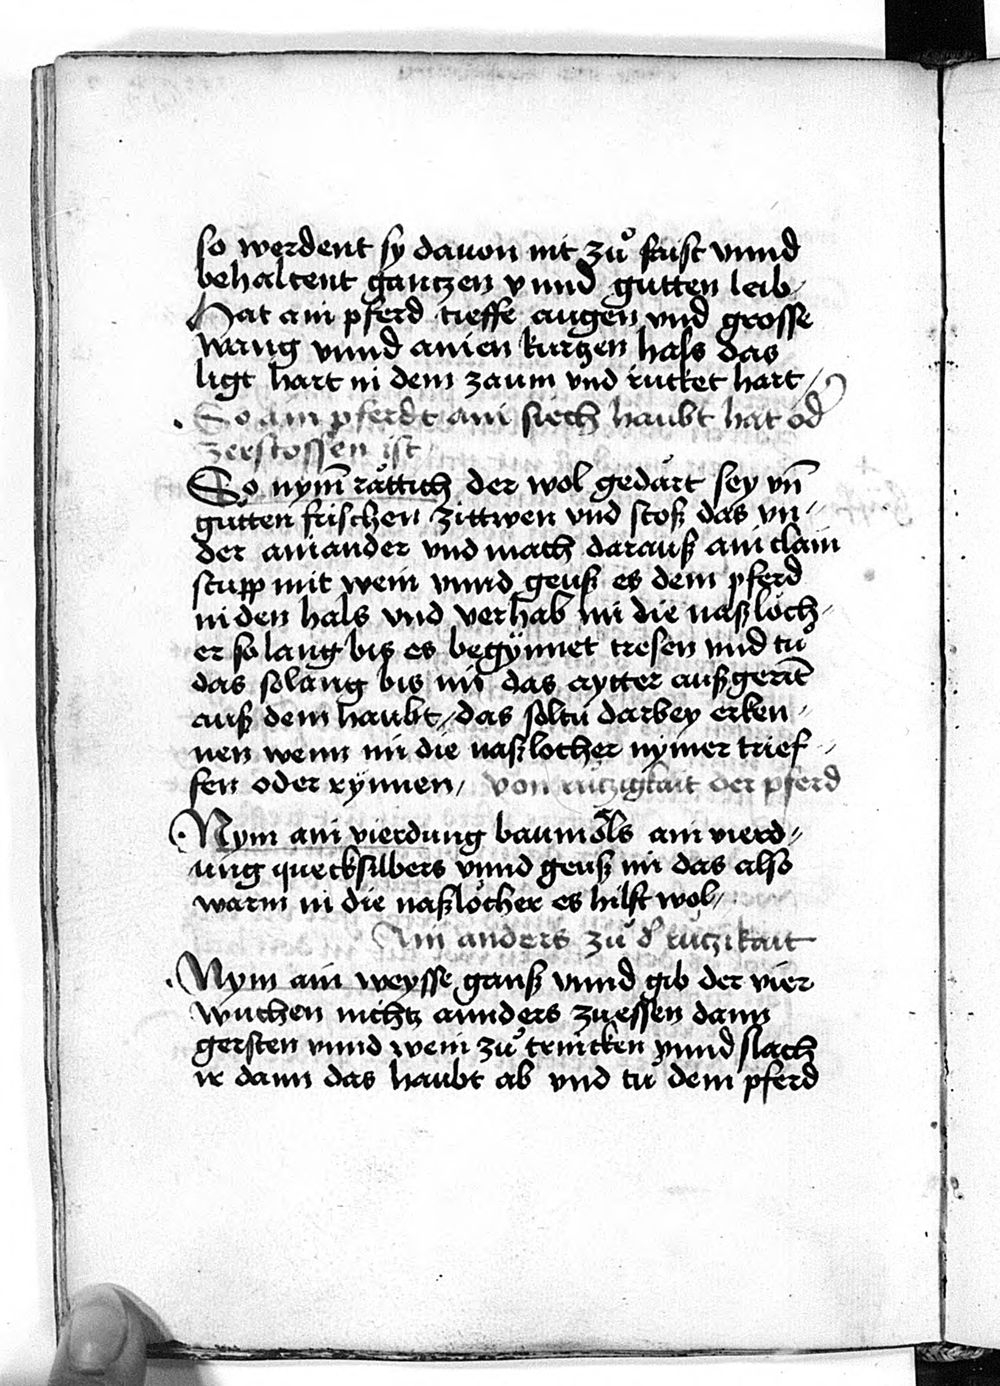 so werdent sy dauon nit zů faist vnnd
behaltent gantzen vnnd gutten leib
Hat ain pferd tieffe augen vnd grosse
wang vnnd ainen kurtzen hals das
ligt hart in dem zaum vnd rucket hart
So ain pferdt ain siech haubt hat od
zerstossen ist
So nym̄ råttich der wol gedårt sey vn̄
gůtten frischen zittwen vnd stoß das vn-
der ainander vnd mach darauß ain clain
stupp mit wein vnnd geuß es dem pferd
in den hals vnd verhab im die naßlöch-
er so lang biß es begynnet tresen vnd tů
das solang bis im das aytter auß geriñt
auß dem haubt, das soltu darbey erken-
nen wenn im die naßlocher nymer trief-
fen oder rynnen, Von rützigkait der pferd
Nym ain vierdung baumöls ain vierd-
ung quecksilbers vnnd geuß im das also
warm in die naßlöcher es hilft wol,
Ain anders zů d rutzikait
Nym ain weysse ganß vnnd gib der vier
wuchen nichtz annders zu essen dann
gersten vnnd wein zů trincken vnnd slach
ir dann das haubt ab vnd tů dem pferd